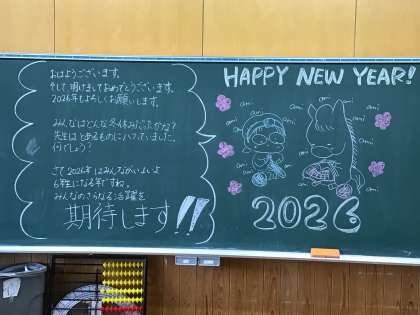 おはようございます。
そして明けましておめでとうございます。
2026年もよろしくお願いします。
みんなはどんな冬休みだったかな?
先生はとあるものにハマっていました。
何でしょう?
さて2026年はみんながいよいよ
6年生になる年ですね。
みんなのさらなる活躍を
期待します!!
HAPPY NEW YEAR!
ami ami ami ami
ami ami ami ami
ami ami ami
2026